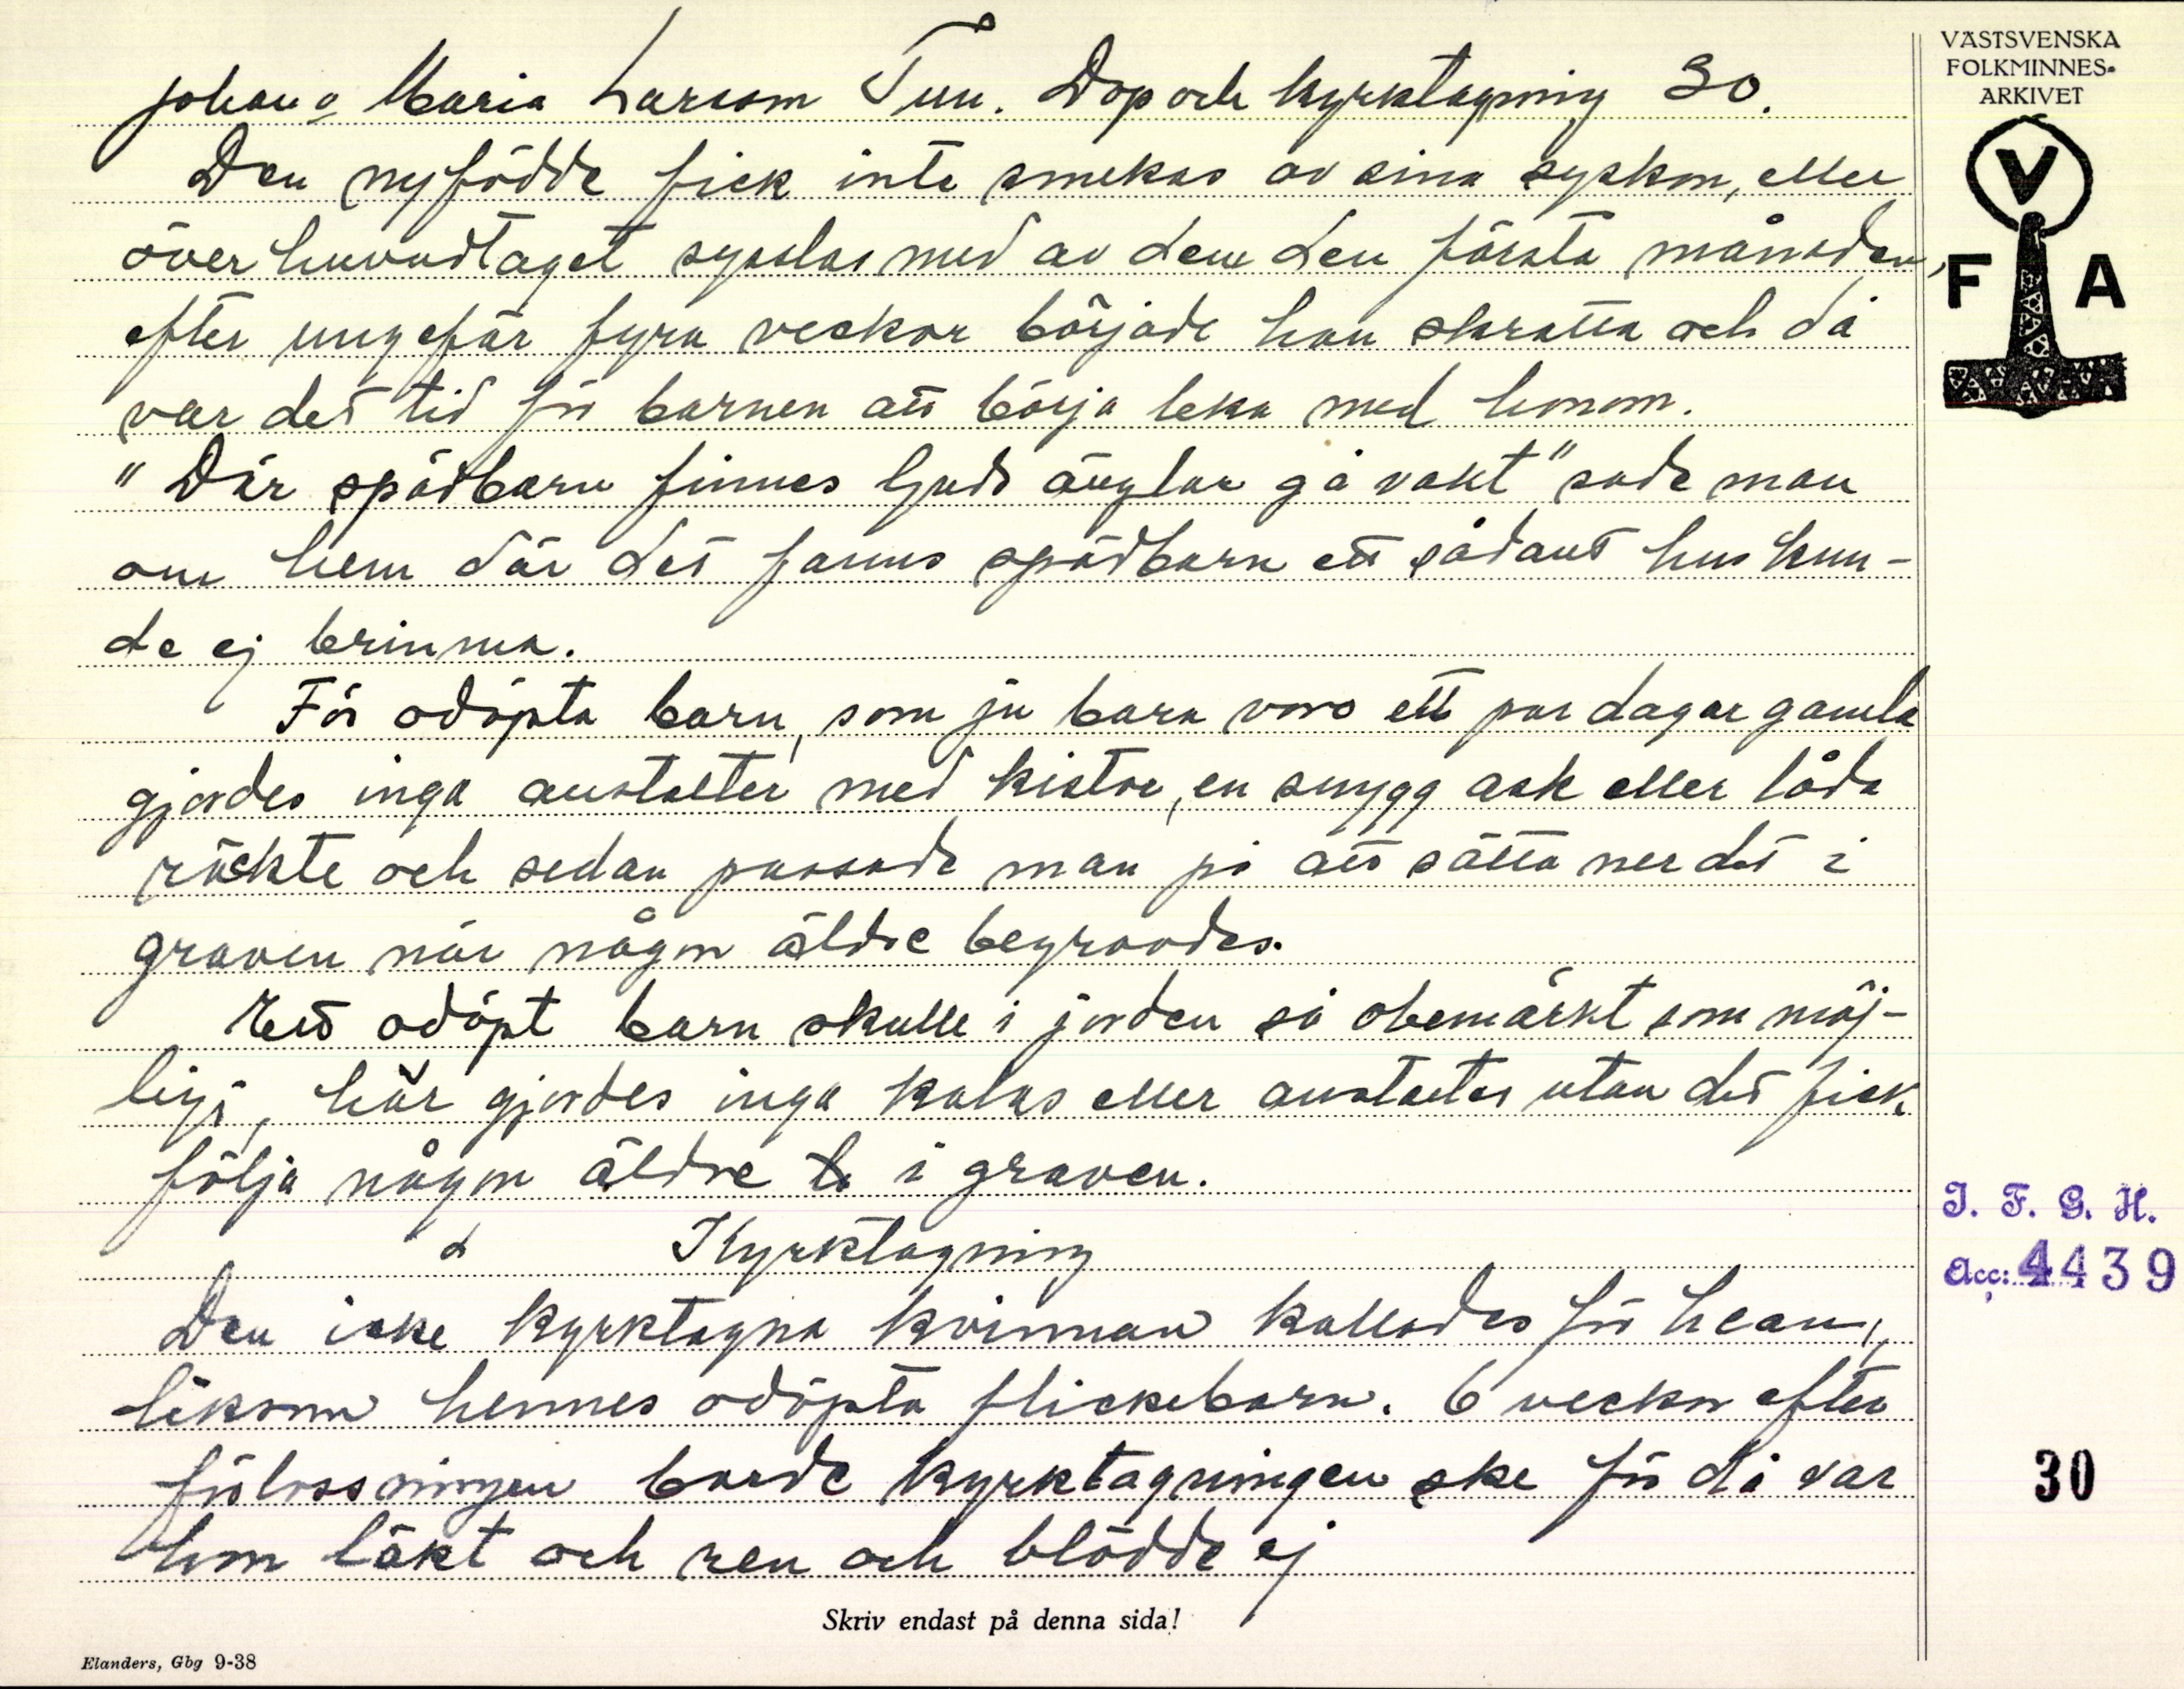 Johan o Maria Larsson Tun. Dop och kyrktagning 30.
Den nyfödde fick inte smekas av sina syskon, eller
överhuvudtaget sysslas med av dem den första månaden,
efter ungefär fyra veckor började han skratta och då
var det tid för barnen att börja leka med honom.
"Där spädbarn finnes Guds änglar gå vakt" sade man
om hem där det fanns spädbarn ett sådant hus kun-
de ej brinna.
För odöpta barn, som ju bara voro ett par dagar gamla
gjordes inga anstalter med kistor, en snygg ask eller låda
räckte och sedan passade man på att sätta ner det i
graven när någon äldre begravdes.
Ett odöpt barn skulle i jorden så obemärkt som möj-
ligt, här gjordes inga kalas eller anstalter utan det fick
följa någon äldre i graven.
Kyrktagning
Den icke kyrktagna kvinnan kallades för hean,
liksom hennes odöpta flickebarn. 6 veckor efter
förlossningen borde kyrktagningen ske för då var
hon läkt och ren och blödde ej
Skriv endast på denna sida!
Elanders, Gbg 9-38
VÄSTSVENSKA
FOLKMINNES-
ARKIVET
V
F A
I. F. G. H.
Acc: 4439
30